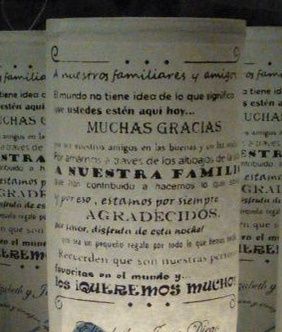 A nuestros familiares y amigos
El mundo no tiene idea de lo que significa
que ustedes estén aquí hoy...
MUCHAS GRACIAS
por ser nuestros amigos en las buenas y en las malas
Por amarnos a través de los altibajos de la
A NUESTRA FAMILI
que han contribuido a hacernos lo que
y por eso, estamos por siempre
AGRADECIDOS,
por favor, disfruta de esta noche!
que sea un pequeño regalo por todo lo que hemos
Recuerden que son nuestras personas
favoritas en el mundo y...
los ¡QUEREMOS MUCHO!